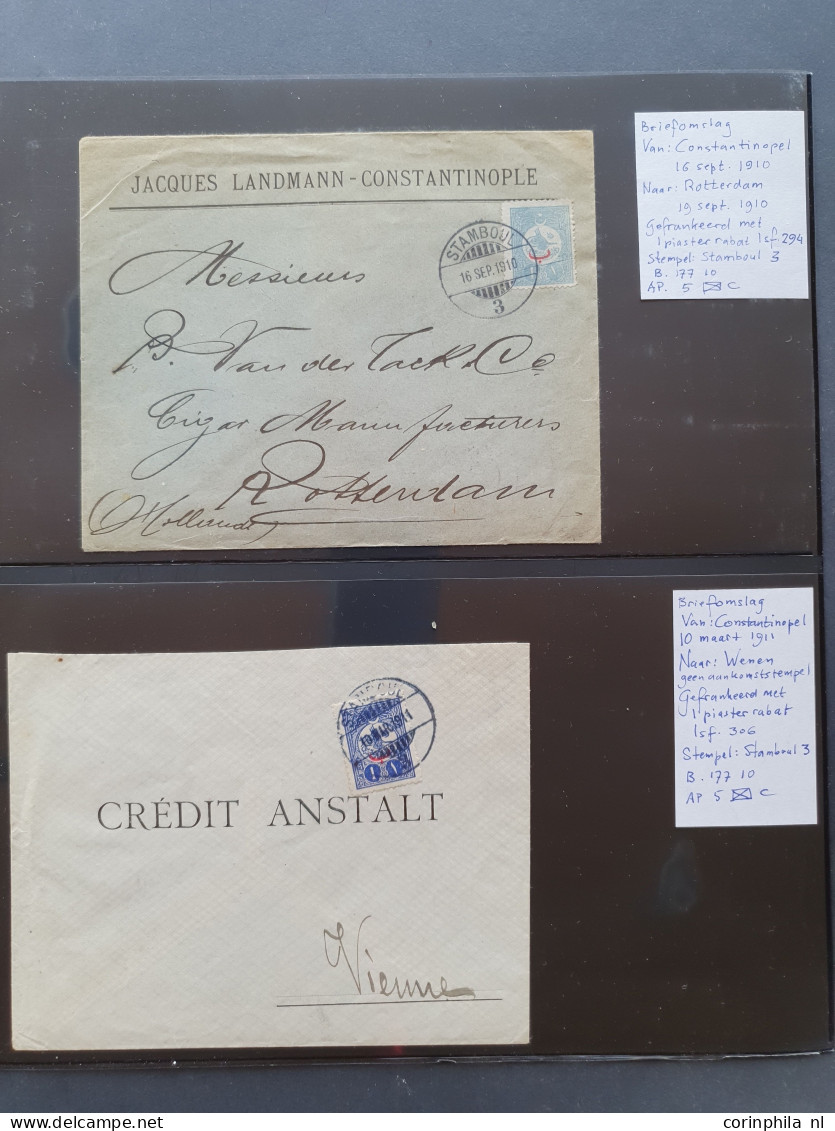 JACQUES LANDMANN-CONSTANTINOPLE
STAMBOUL
16 SEP.1910
3
Messieurs
B. Van der Tack & Co
Cigar Manufacturers
Rotterdam
(Hollande)
Briefomslag
Van: Constantinopel
16 sept. 1910
Naar: Rotterdam
19 sept. 1910
Gefrankeerd met
1 piaster rabat Isf. 294
Stempel: Stamboul 3
B. 177 10
AP. 5 C
STAMBOUL
CRÉDIT ANSTALT
Vienne
Briefomslag
Van: Constantinopel
10 maart 1911
Naar: Wenen
geen aankomststempel
Gefrankeerd met
1 piaster rabat
Isf. 306
Stempel: Stamboul 3
B. 177 10
AP 5 C
www.delcampe.net
corinphila nl